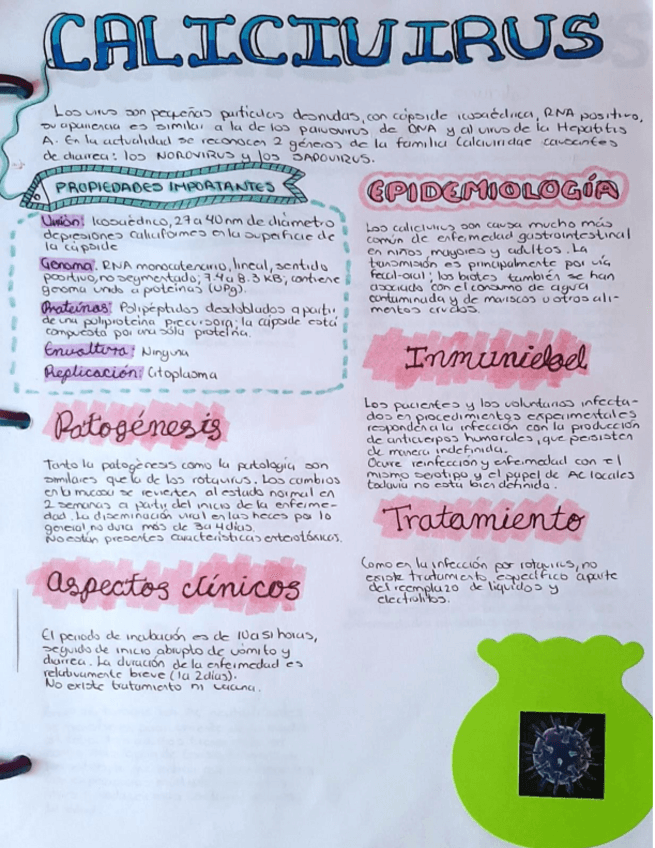 CALICIVIRUS
Los virus son pequeñas particulas desnudas, con cápside icosaédrica, RNA positivo,
su apariencia es similar a la de los parvovirus de DNA y al virus de la Hepatitis
A. En la actualidad se reconocen 2 géneros de la familia Calciviridae causantes
de diarrea: los NOROVIRUS y los SAPOVIRUS.
PROPIEDADES IMPORTANTES
Virión: Icosaédrico, 27 a 40 nm de diámetro
depresiones caliciformes en la superficie de
la cápside
Genoma: RNA monocatenario, lineal, sentido
positivo, no segmentado; 7.4 a 8.3 KB; contiene
genoma unido a proteínas (VPg).
Proteínas: Polipéptidos desdoblados a partir
de una poliproteina precursora; la cápside está
compuesta por una sola proteína.
Envoltura: Ninguna
Replicación: Citoplasma
Patogénesis
Tanto la patogénesis como la patología son
similares que la de los rotavirus. Los cambios
en la mucosa se revierten al estado normal en
2 semanas a partir del inicio de la enferme-
dad. La diseminación viral en las heces por lo
general no dura más de 3 a 4 días.
No están presentes características enterotóxicas.
Aspectos clínicos
El periodo de incubación es de 10 a 51 horas,
seguido de inicio abrupto de vómito y
diarrea. La duración de la enfermedad es
relativamente breve (1 a 2 días).
No existe tratamiento ni vacuna.
EPIDEMIOLOGÍA
Los calicivirus son causa mucho más
común de enfermedad gastrointestinal
en niños mayores y adultos. La
transmisión es principalmente por vía
fecal-oral; los brotes también se han
asociado con el consumo de agua
contaminada y de mariscos u otros ali-
mentos crudos.
Inmunidad
Los pacientes y los voluntarios infecta-
dos en procedimientos experimentales
responden a la infección con la producción
de anticuerpos humorales, que persisten
de manera indefinida.
Ocurre reinfección y enfermedad con el
mismo serotipo y el papel de AC locales
todavía no está bien definido.
Tratamiento
Como en la infección por rotavirus, no
existe tratamiento específico aparte
del reemplazo de líquidos y
electrolitos.